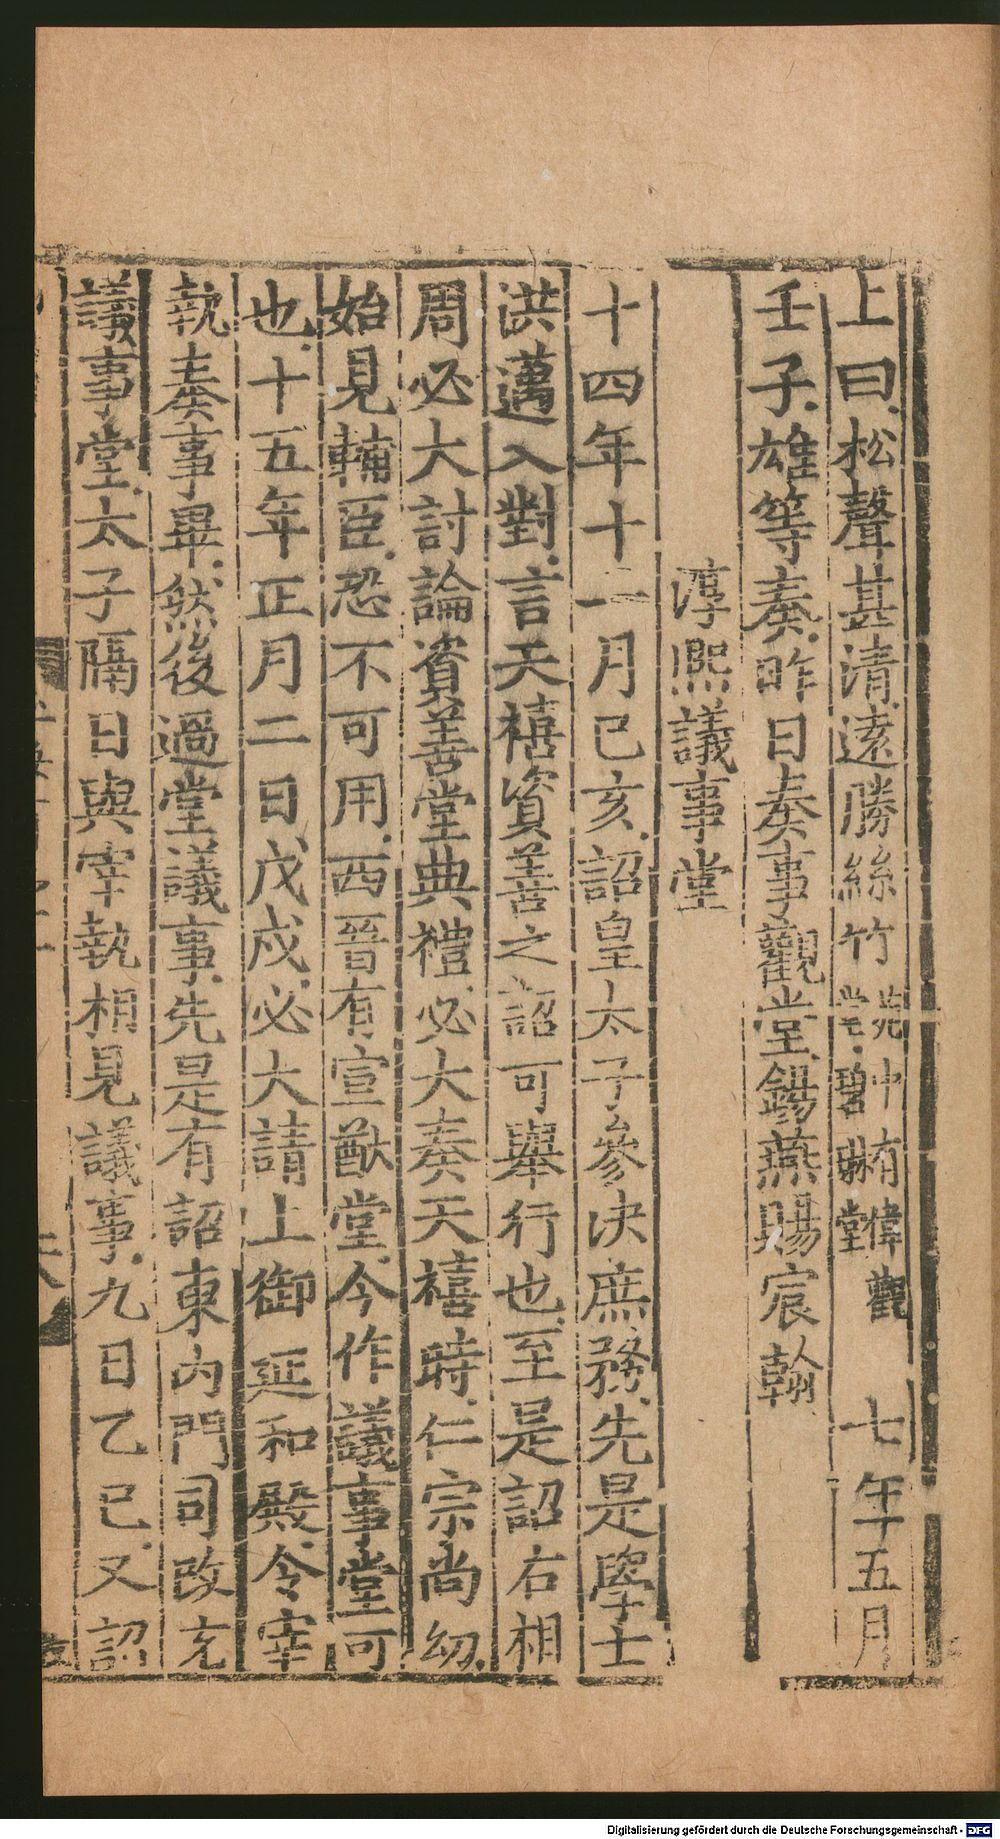 上曰松聲甚清遠勝絲竹苑中有偉觀堂碧琳堂七年五月
壬子雄等奏昨日奏事觀堂錫燕賜宸翰
淳熙議事堂
十四年十一月己亥詔皇太子參決庶務先是學士
洪邁入對言天禧資善之詔可舉行也至是詔右相
周必大討論資善堂典禮必大奏天禧時仁宗尚幼
始見輔臣恐不可用西晉有宣猷堂今作議事堂可
也十五年正月二日戊戌必大請上御延和殿令宰
執奏事畢然後過堂議事先是有詔東內門司改充
議事堂太子隔日與宰執相見議事九日乙巳又詔
Digitalisierung gefördert durch die Deutsche Forschungsgemeinschaft - DFG